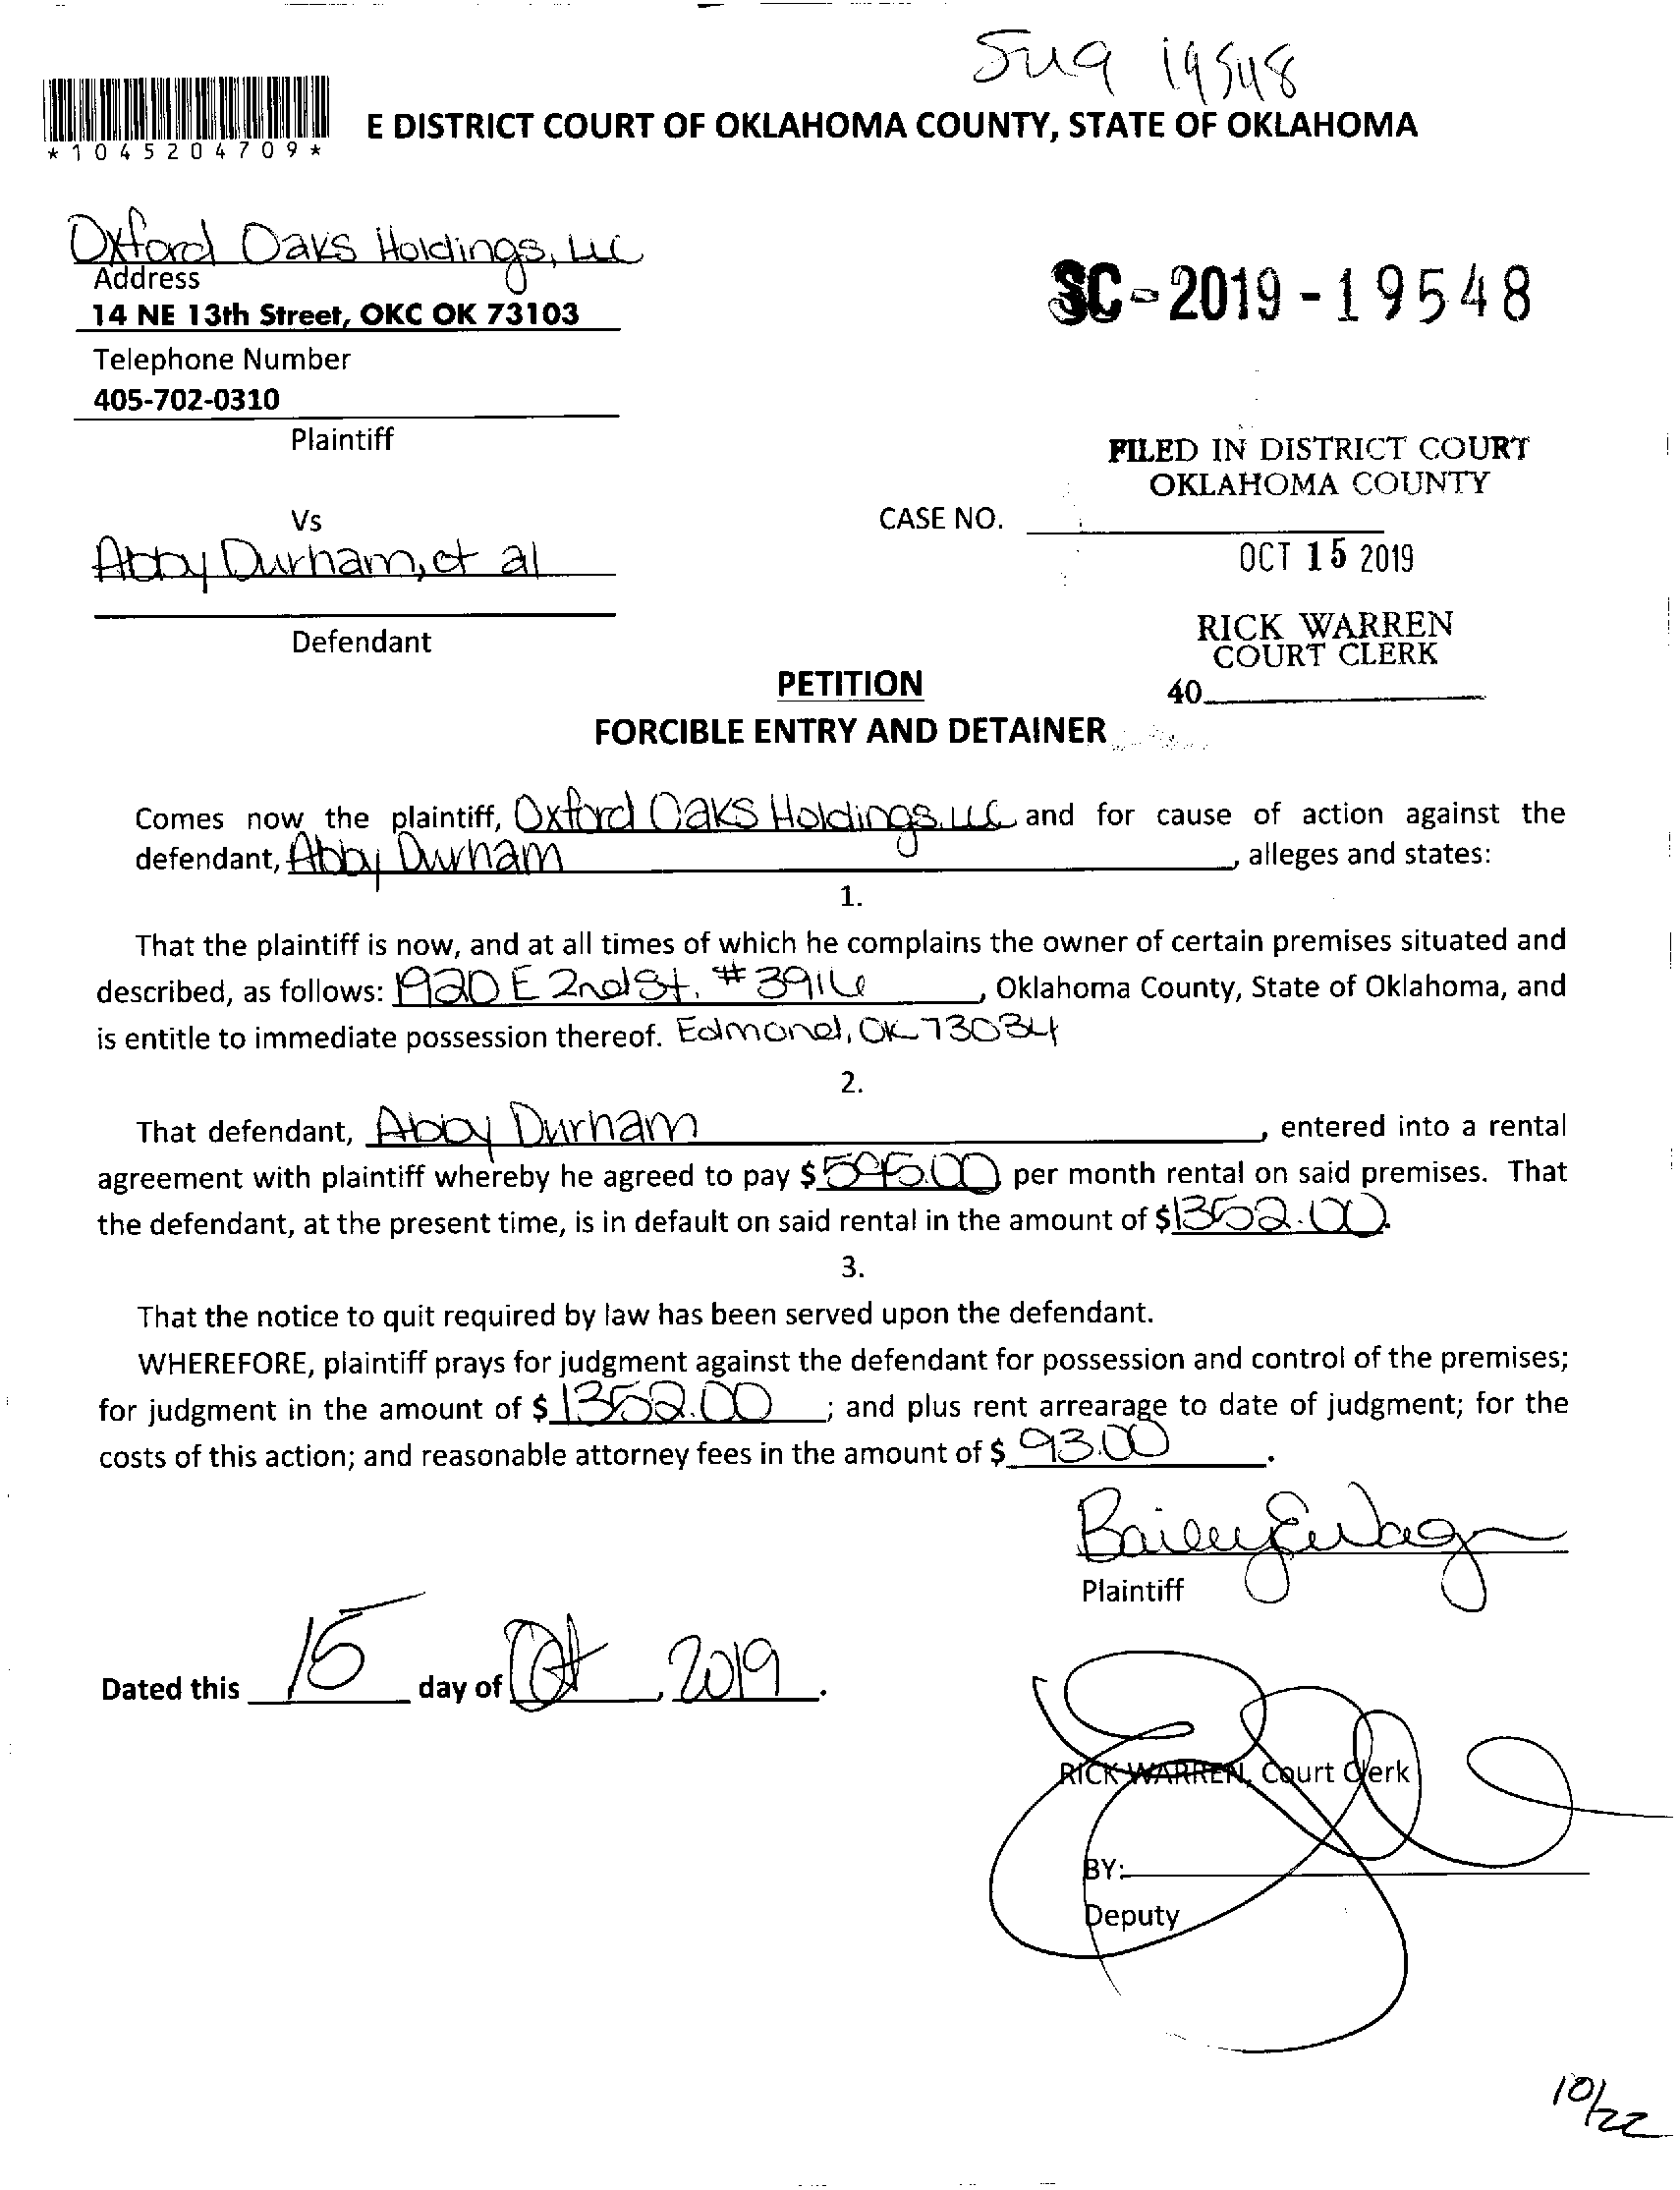 19548
E DISTRICT COURT OF OKLAHOMA COUNTY, STATE OF OKLAHOMA
*1045204709*
Oxford Oaks Holdings, LLC
Address
14 NE 13th Street, OKC OK 73103
SC-2019-19548
Telephone Number
405-702-0310
Plaintiff
FILED IN DISTRICT COURT
OKLAHOMA COUNTY
Vs
CASE NO.
Abby Durham, et al
OCT 15 2019
Defendant
RICK WARREN
COURT CLERK
PETITION
40
FORCIBLE ENTRY AND DETAINER
Comes now the plaintiff, Oxford Oaks Holdings, LLC and for cause of action against the
defendant, Abby Durham, alleges and states:
1.
That the plaintiff is now, and at all times of which he complains the owner of certain premises situated and
described, as follows: 1920 E 2nd St. # 3916, Oklahoma County, State of Oklahoma, and
is entitle to immediate possession thereof. Edmond, OK 73034
2.
That defendant, Abby Durham, entered into a rental
agreement with plaintiff whereby he agreed to pay $595.00 per month rental on said premises. That
the defendant, at the present time, is in default on said rental in the amount of $1352.00.
3.
That the notice to quit required by law has been served upon the defendant.
WHEREFORE, plaintiff prays for judgment against the defendant for possession and control of the premises;
for judgment in the amount of $1352.00; and plus rent arrearage to date of judgment; for the
costs of this action; and reasonable attorney fees in the amount of $93.00.
Plaintiff
Dated this 15 day of Oct, 2019.
RICK WARREN, Court Clerk
BY:
Deputy
10/22